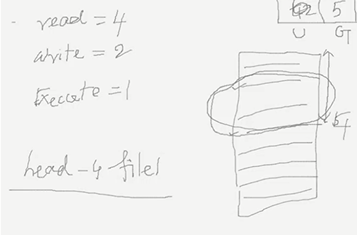 read = 4
write = 2
Execute = 1
head -4 file1
5
U GT